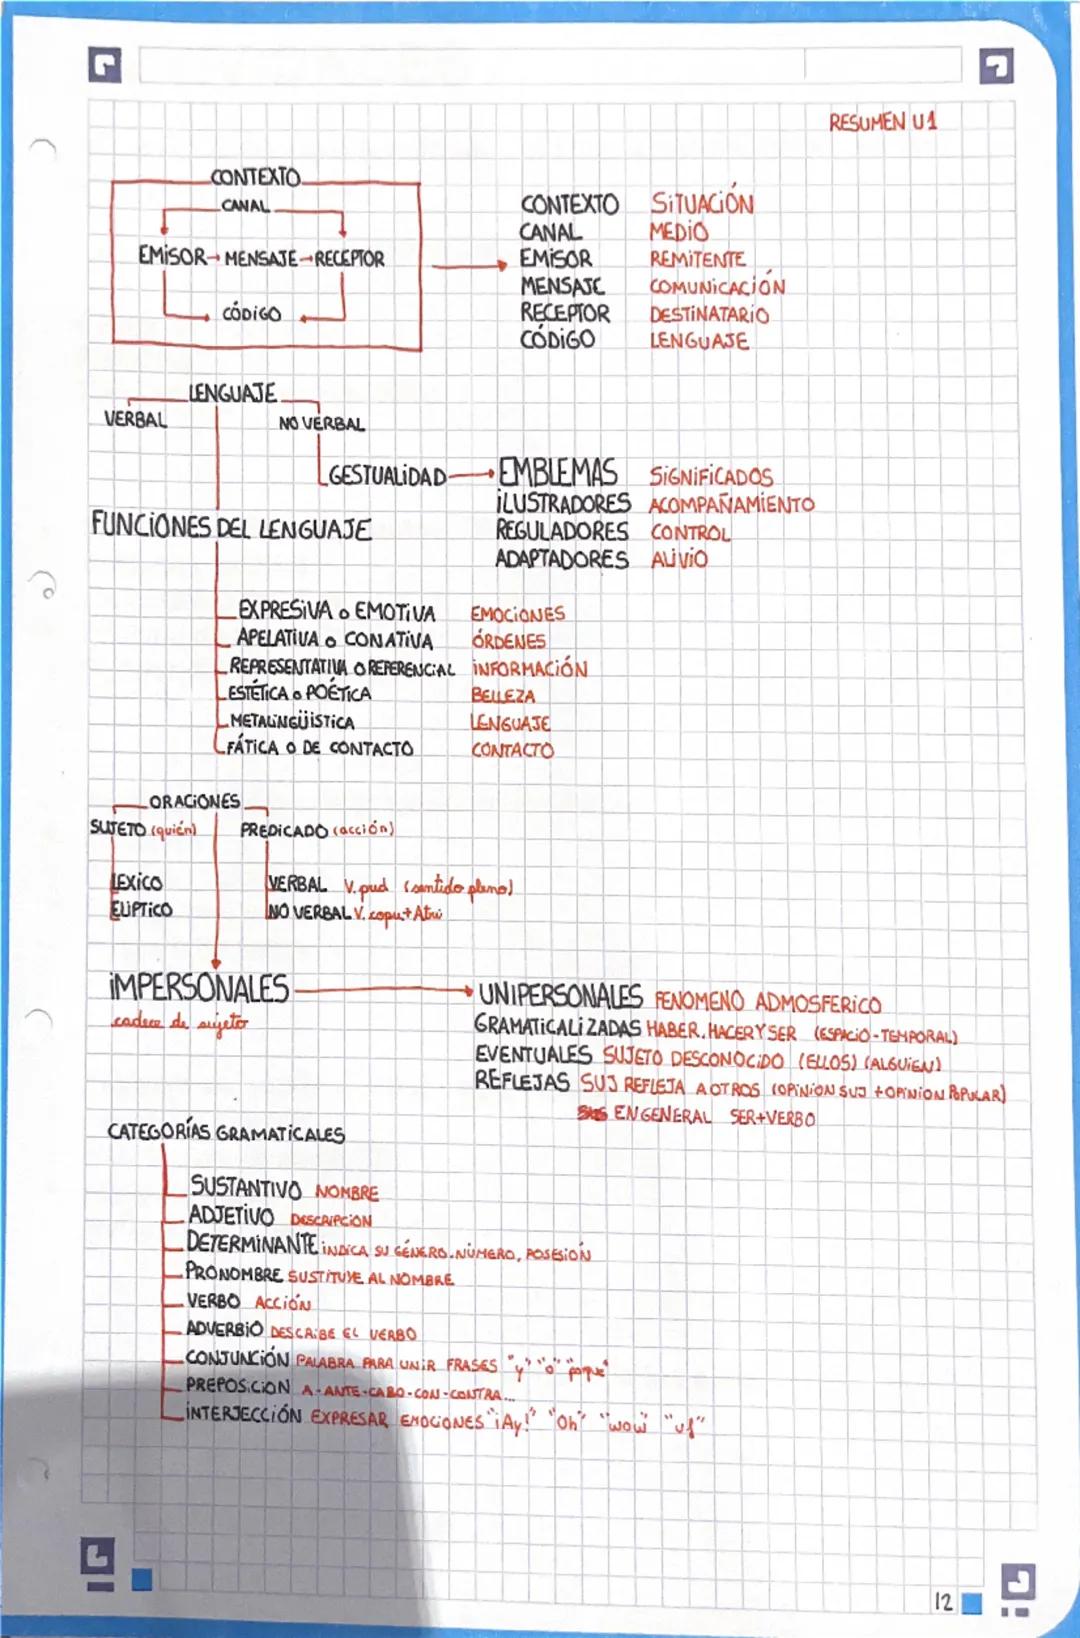 RESUMEN U1
CONTEXTO
CANAL
EMISOR → MENSAJE → RECEPTOR
CÓDIGO
CONTEXTO SITUACIÓN
CANAL MEDIO
EMISOR REMITENTE
MENSAJE COMUNICACIÓN
RECEPTOR DESTINATARIO
CÓDIGO LENGUAJE
LENGUAJE
VERBAL NO VERBAL
GESTUALIDAD → EMBLEMAS SIGNIFICADOS
ILUSTRADORES ACOMPAÑAMIENTO
REGULADORES CONTROL
ADAPTADORES ALIVIO
FUNCIONES DEL LENGUAJE
EXPRESIVA o EMOTIVA EMOCIONES
APELATIVA o CONATIVA ÓRDENES
REPRESENTATIVA O REFERENCIAL INFORMACIÓN
ESTÉTICA o POÉTICA BELLEZA
METALINGÜÍSTICA LENGUAJE
FÁTICA O DE CONTACTO CONTACTO
ORACIONES
SUJETO (quién) PREDICADO (acción)
LEXICO VERBAL V. pred (sentido pleno)
ELIPTICO NO VERBAL V. copu + Atri
IMPERSONALES → UNIPERSONALES FENOMENO ADMOSFERICO
cadece de sujeto
GRAMATICALIZADAS HABER, HACER Y SER (ESPACIO-TEMPORAL)
EVENTUALES SUJETO DESCONOCIDO (ELLOS) (ALGUIEN)
REFLEJAS SUJ REFLEJA A OTROS (OPINION SUJ + OPINION POPULAR)
EN GENERAL SER+VERBO
CATEGORÍAS GRAMATICALES
SUSTANTIVO NOMBRE
ADJETIVO DESCRIPCION
DETERMINANTE INDICA SU GÉNERO, NÚMERO, POSESIÓN
PRONOMBRE SUSTITUYE AL NOMBRE
VERBO ACCIÓN
ADVERBIO DESCRIBE EL VERBO
CONJUNCIÓN PALABRA PARA UNIR FRASES "y" "o" "porque"
PREPOSICION A-ANTE-CABO-CON-CONTRA...
INTERJECCIÓN EXPRESAR EMOCIONES "¡Ay!" "Oh" "wow" "uf"
12